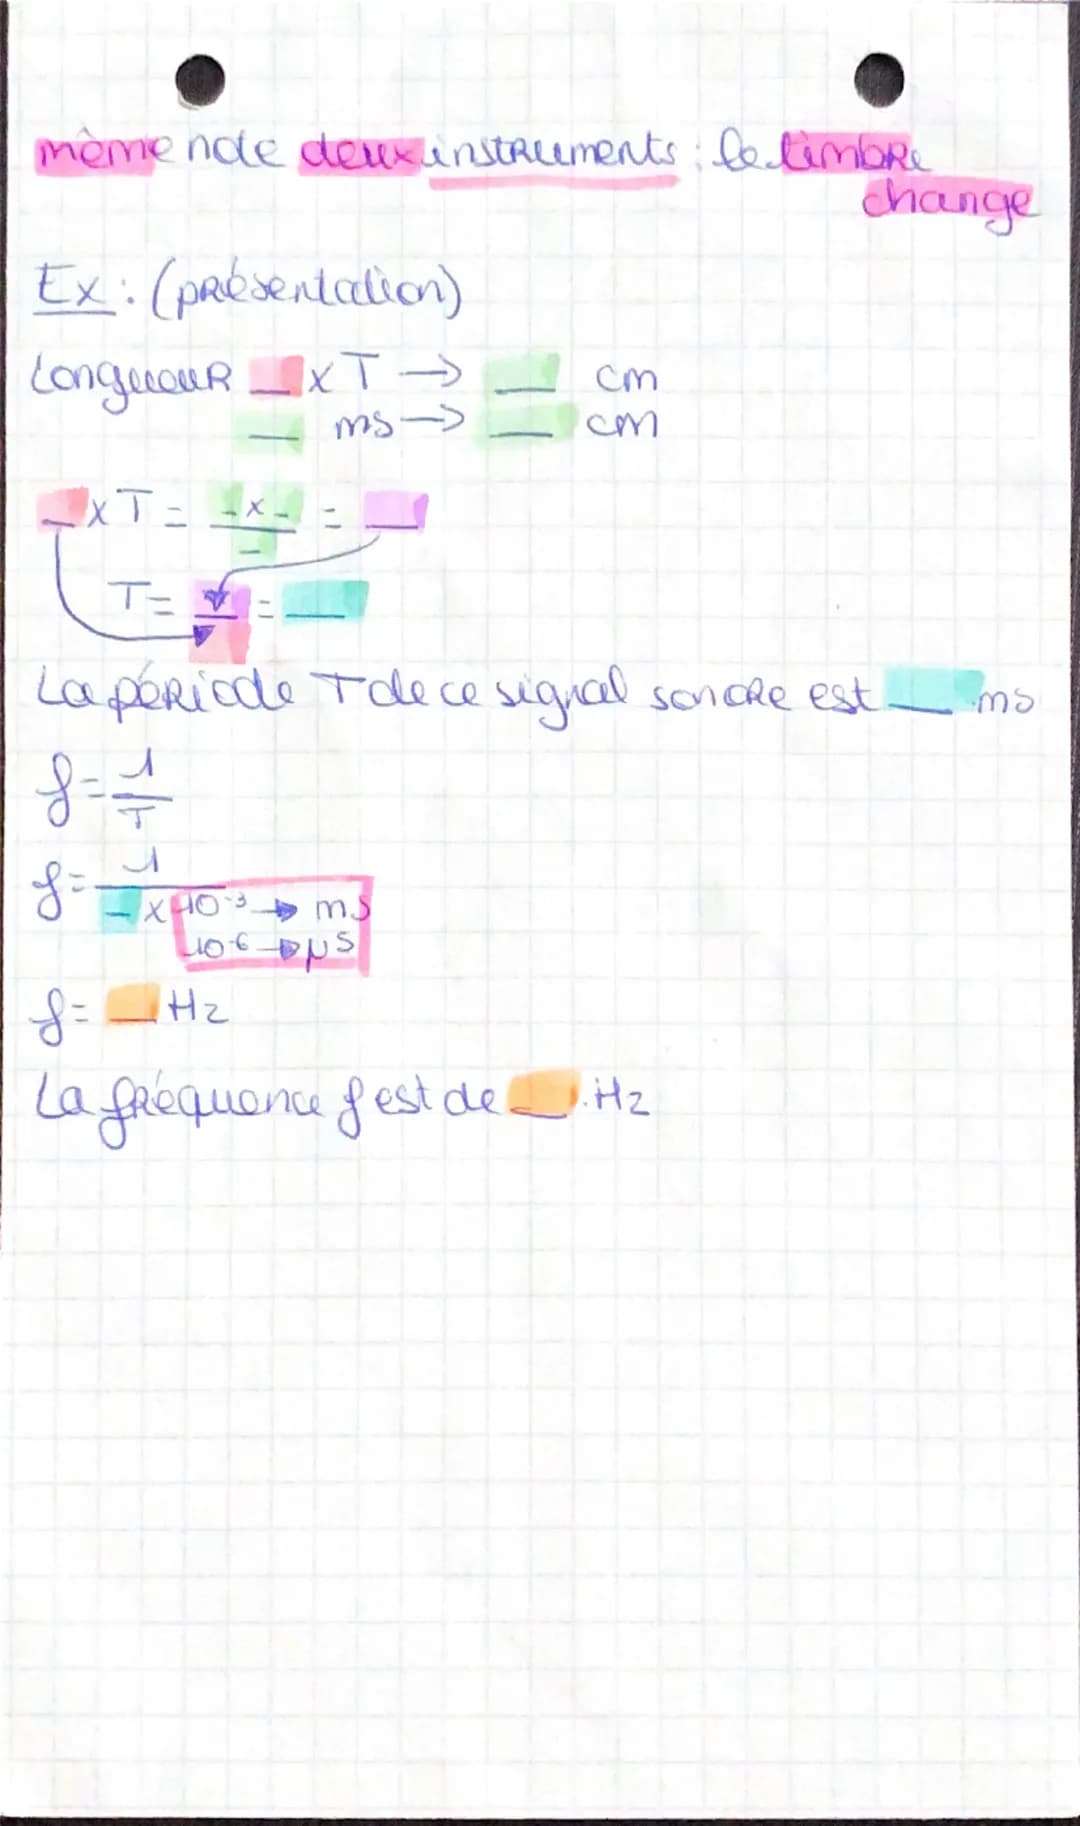 même note deux instruments : le timbre
change
Ex : (présentation)
Longueur _ x T → _ cm
_ ms → _ cm
_ x T = _ x _ / _ = _
T = _ / _ = _
La période T de ce signal sonore est _ ms
f = 1 / T
f = 1 / _ x 10⁻³ → ms
10⁻⁶ → µs
f = _ Hz
La fréquence f est de _ . Hz